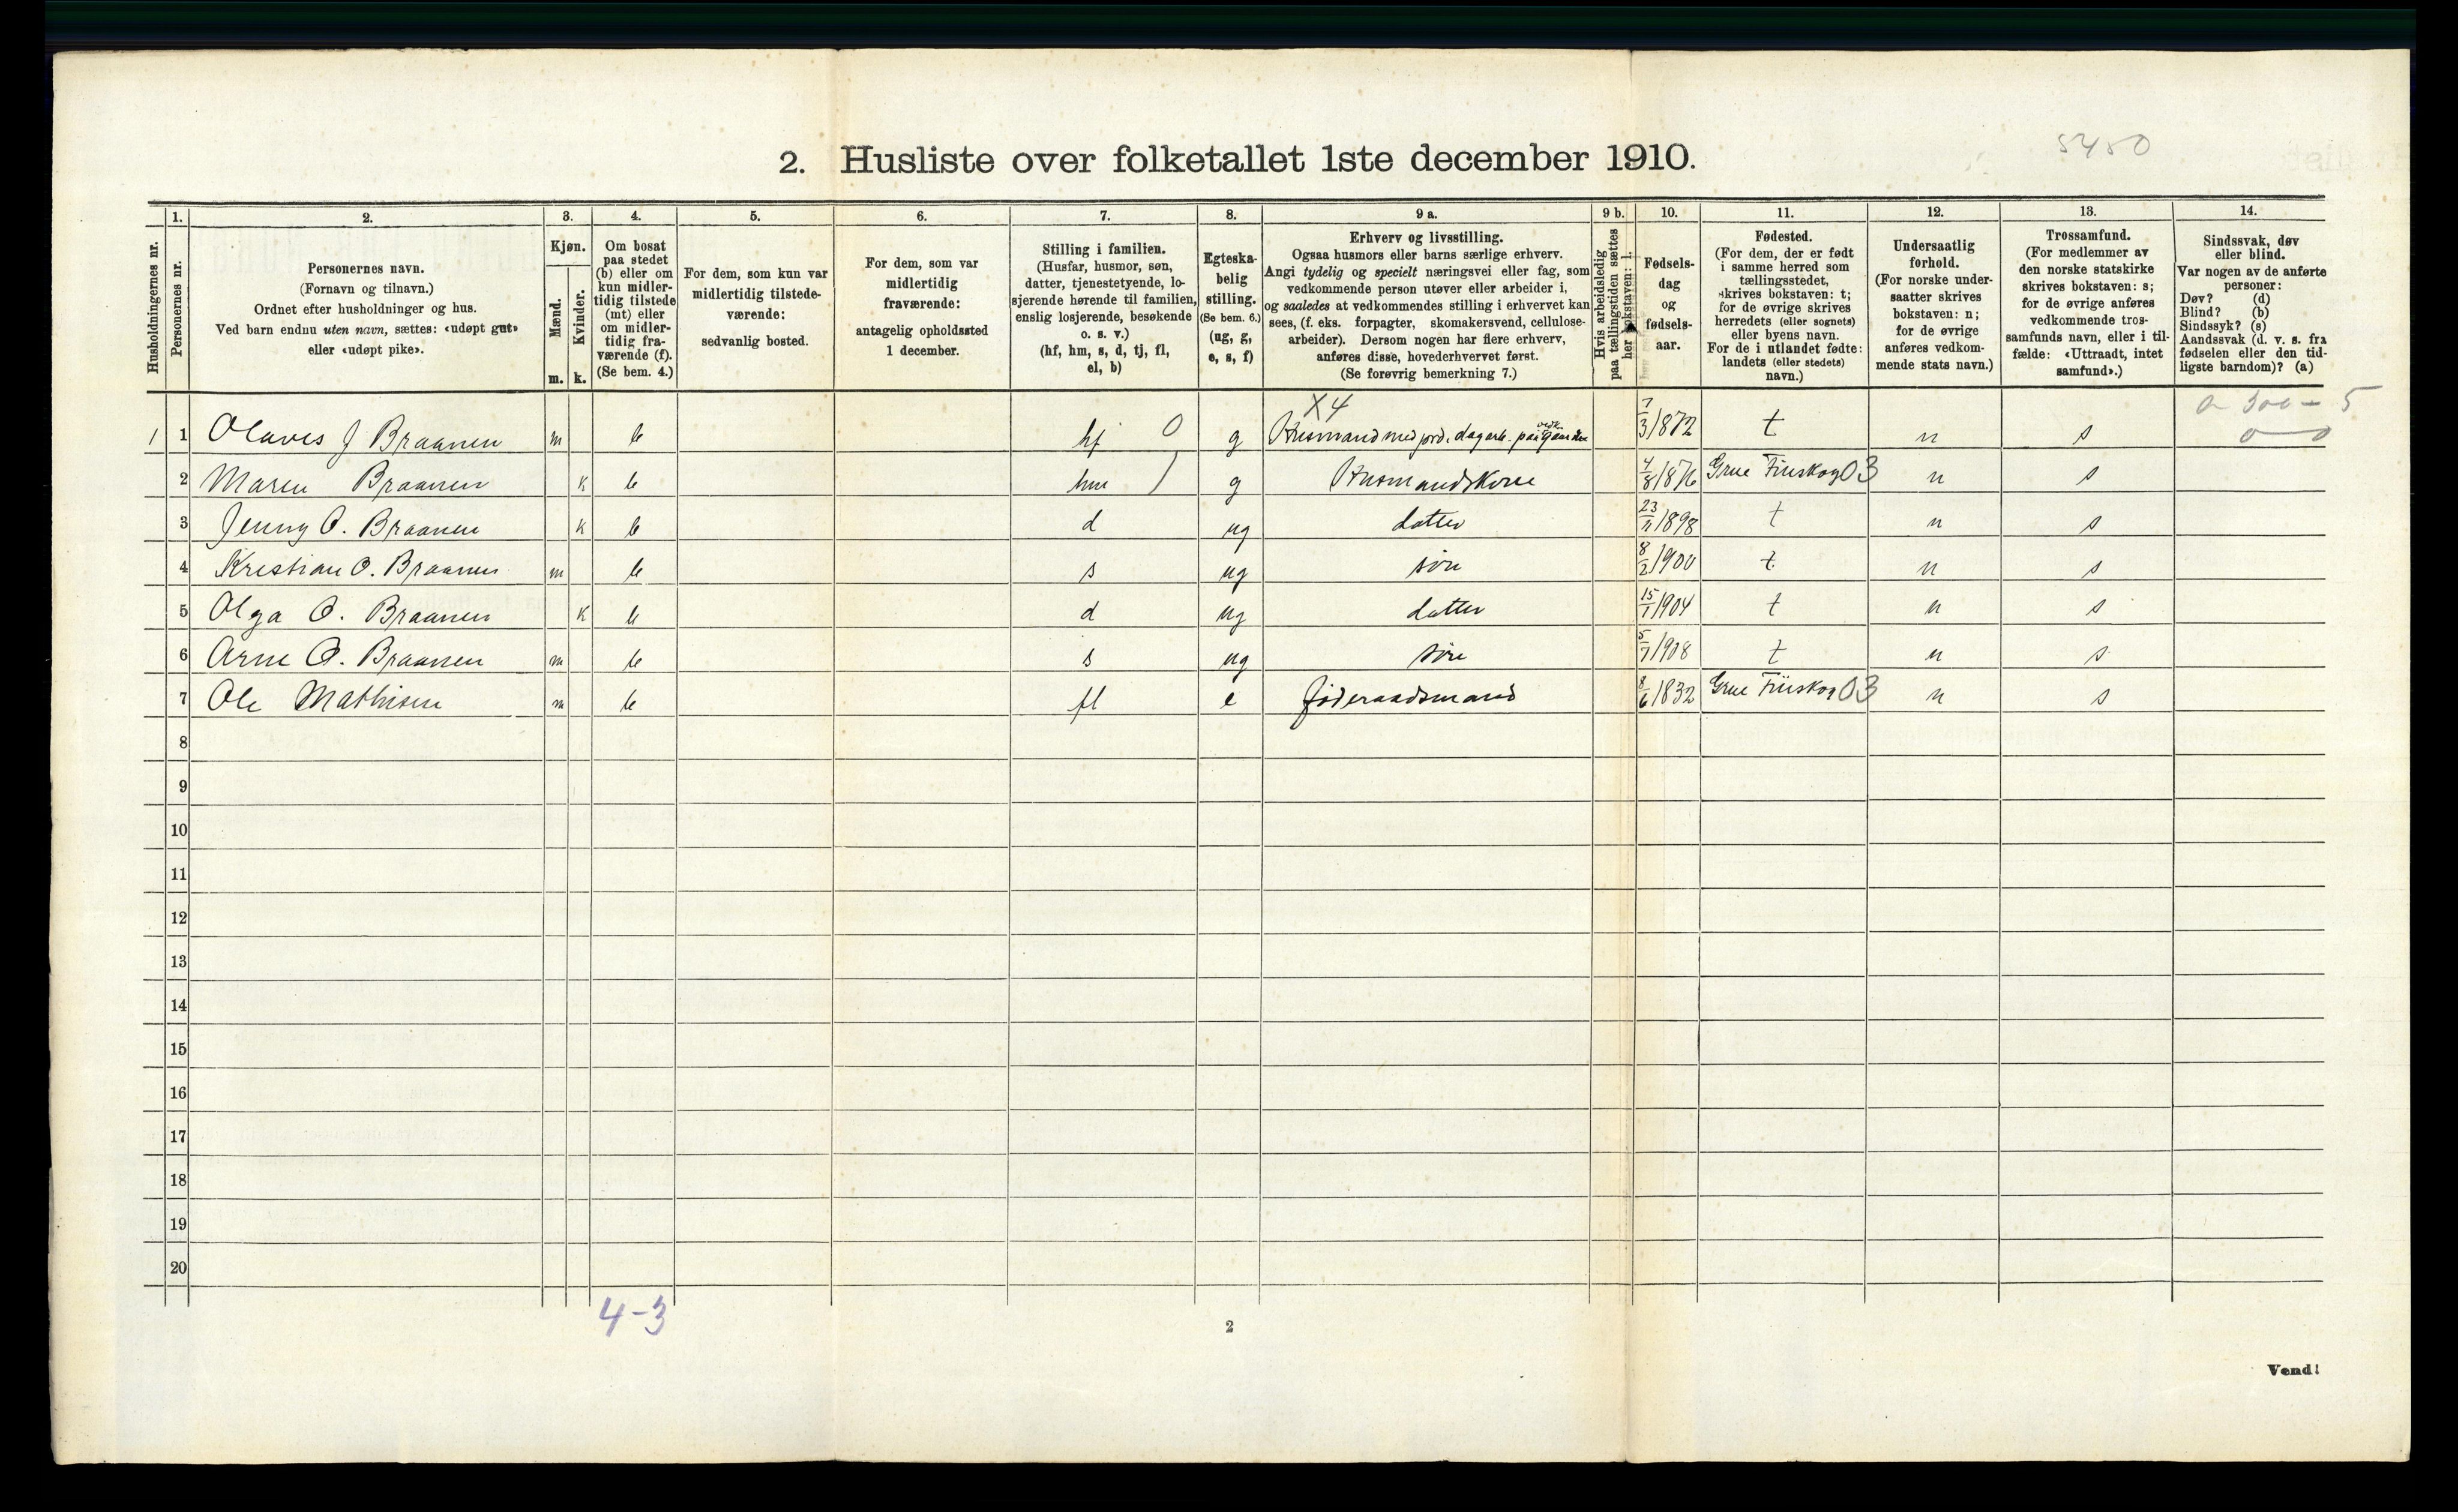 5450
2. Husliste over folketallet 1ste december 1910.
Husholdningernes nr.
1.
Personernes nr.
2.
Personernes navn.
(Fornavn og tilnavn.)
Ordnet efter husholdninger og hus.
Ved barn endnu uten navn, sættes: «udøpt gut»
eller «udøpt pike».
3.
Kjøn.
Mænd.
Kvinder.
m. k.
4.
Om bosat
paa stedet
(b) eller om
kun midler-
tidig tilstede
(mt) eller
om midler-
tidig fra-
værende (f).
(Se bem. 4.)
5.
For dem, som kun var
midlertidig tilstede-
værende:
sedvanlig bosted.
6.
For dem, som var
midlertidig
fraværende:
antagelig opholdssted
1 december.
7.
Stilling i familien.
(Husfar, husmor, søn,
datter, tjenestetyende, lo-
sjerende hørende til familien,
enslig losjerende, besøkende
o. s. v.)
(hf, hm, s, d, tj, fl,
el, b)
8.
Egteska-
belig
stilling.
(Se bem. 6.)
(ug, g,
e, s, f)
9 a.
Erhverv og livsstilling.
Ogsaa husmors eller barns særlige erhverv.
Angi tydelig og specielt næringsvei eller fag, som
vedkommende person utøver eller arbeider i,
og saaledes at vedkommendes stilling i erhvervet kan
sees, (f. eks. forpagter, skomakersvend, cellulose-
arbeider). Dersom nogen har flere erhverv,
anføres disse, hovederhvervet først.
(Se forøvrig bemerkning 7.)
9 b.
Hvis arbeidsledig
paa tællingstiden sættes
her bokstaven: l.
10.
Fødsels-
dag
og
fødsels-
aar.
11.
Fødested.
(For dem, der er født
i samme herred som
tællingsstedet,
skrives bokstaven: t;
for de øvrige skrives
herredets (eller sognets)
eller byens navn.
For de i utlandet fødte:
landets (eller stedets)
navn.)
12.
Undersaatlig
forhold.
(For norske under-
saatter skrives
bokstaven: n;
for de øvrige
anføres vedkom-
mende stats navn.)
13.
Trossamfund.
(For medlemmer av
den norske statskirke
skrives bokstaven: s;
for de øvrige anføres
vedkommende tros-
samfunds navn, eller i til-
fælde: «Uttraadt, intet
samfund».)
14.
Sindssvak, døv
eller blind.
Var nogen av de anførte
personer:
Døv? (d)
Blind? (b)
Sindssyk? (s)
Aandssvak (d. v. s. fra
fødselen eller den tid-
ligste barndom)? (a)
X4 300 - 5
1 1 Olaves J Braanen m b hf 0 g Husmand med jord, dagarb. paa vedk. gaarden 7/3 1872 t n s 0 - 0
2 Maren Braanen k b hm 1 g Husmandskone 4/8 1876 Grue Finskog 03 n s
3 Jenny O. Braanen k b d ug datter 23/11 1898 t n s
4 Kristian O. Braanen m b s ug søn 8/2 1900 t n s
5 Olga O. Braanen k b d ug datter 15/1 1904 t n s
6 Arne O. Braanen m b s ug søn 5/7 1908 t n s
7 Ole Mathisen m b fl e føderaadsmand 8/6 1832 Grue Finskog 03 n s
8
9
10
11
12
13
14
15
16
17
18
19
20
4-3
2
Vend!